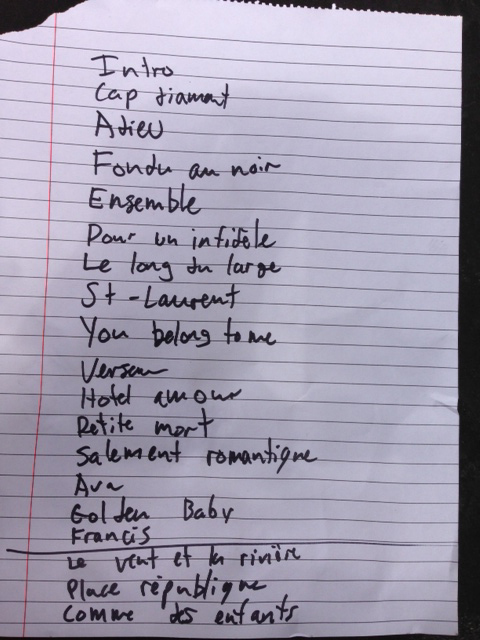 Intro
Cap diamant
Adieu
Fondu au noir
Ensemble
Pour un infidèle
Le long du large
St-Laurent
You belong to me
Verseau
Hotel amour
Petite mort
Salement romantique
Ava
Golden Baby
Francis
Le vent et la rivière
Place république
Comme des enfants